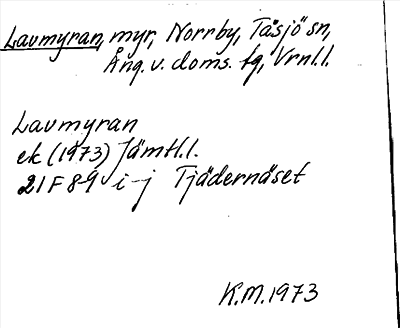 Lavmyran, myr, Norrby, Tåsjö sn,
Ång. v. doms. fg, Vrnl.l.
Lavmyran
ek (1973) Jämtl.l.
21F 8-9 i-j Tjädernäset
K.M. 1973